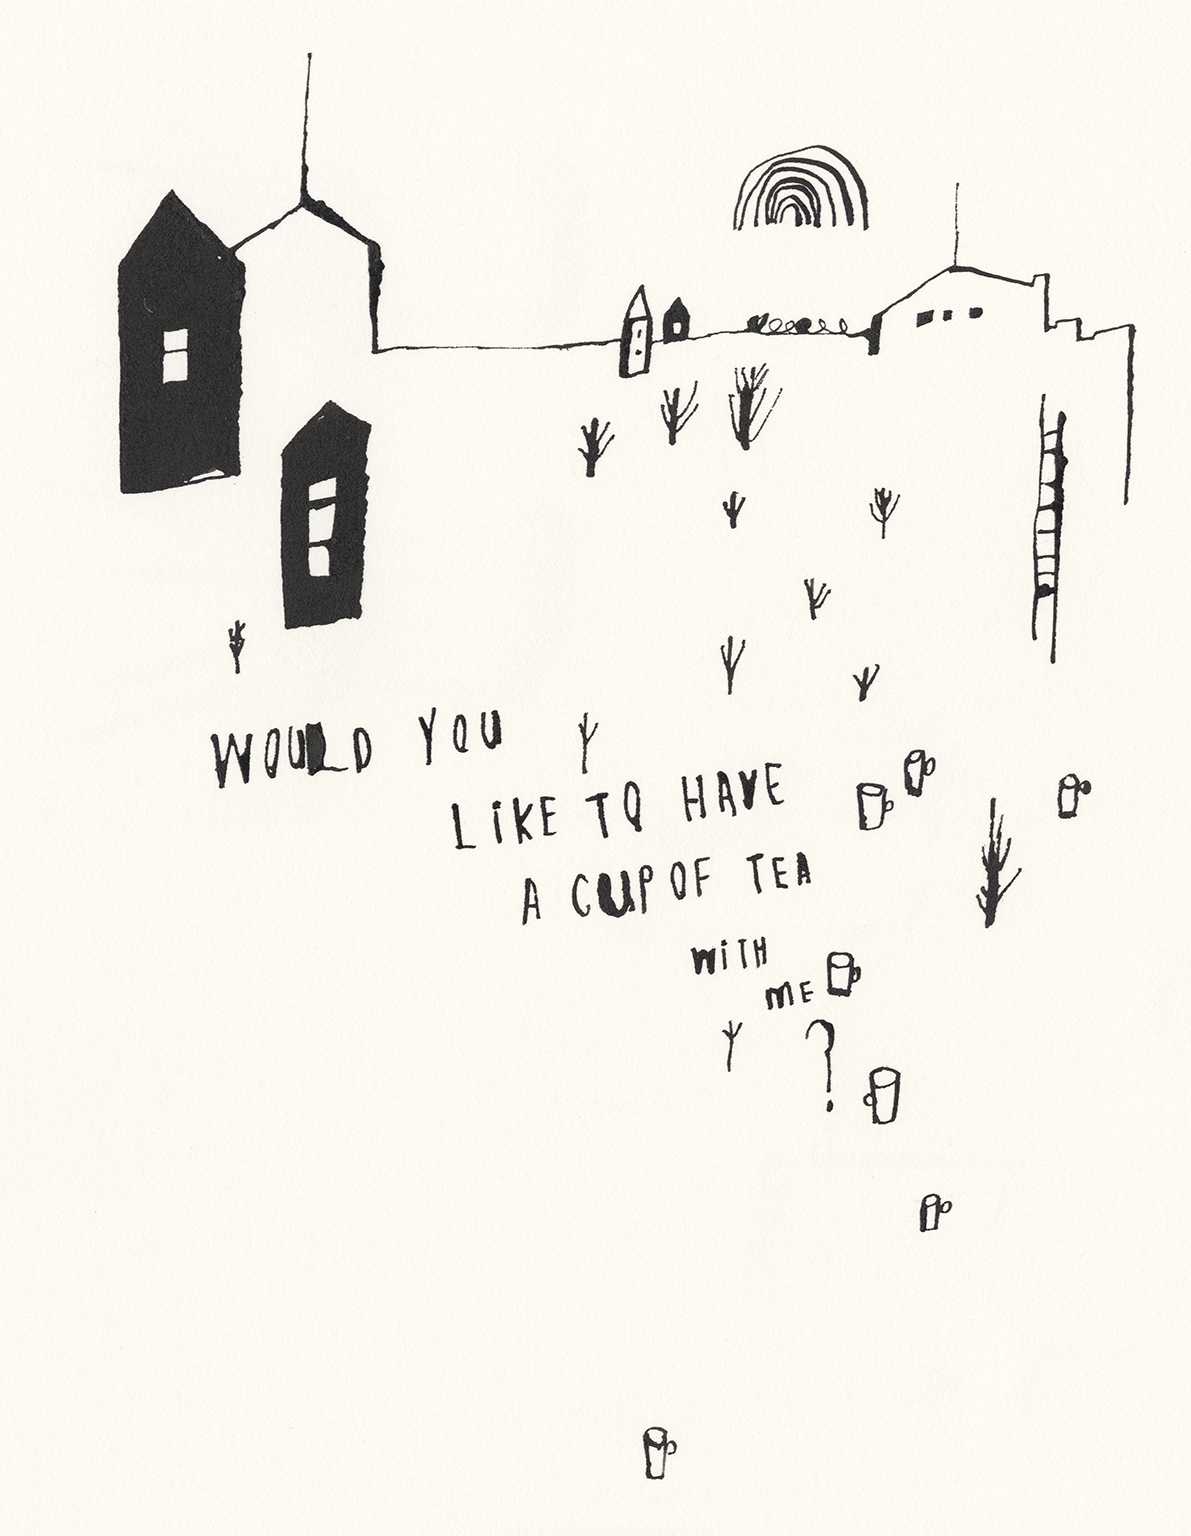 WOULD YOU
LiKE TO HAVE
A CUP OF TEA
WiTH
ME
?